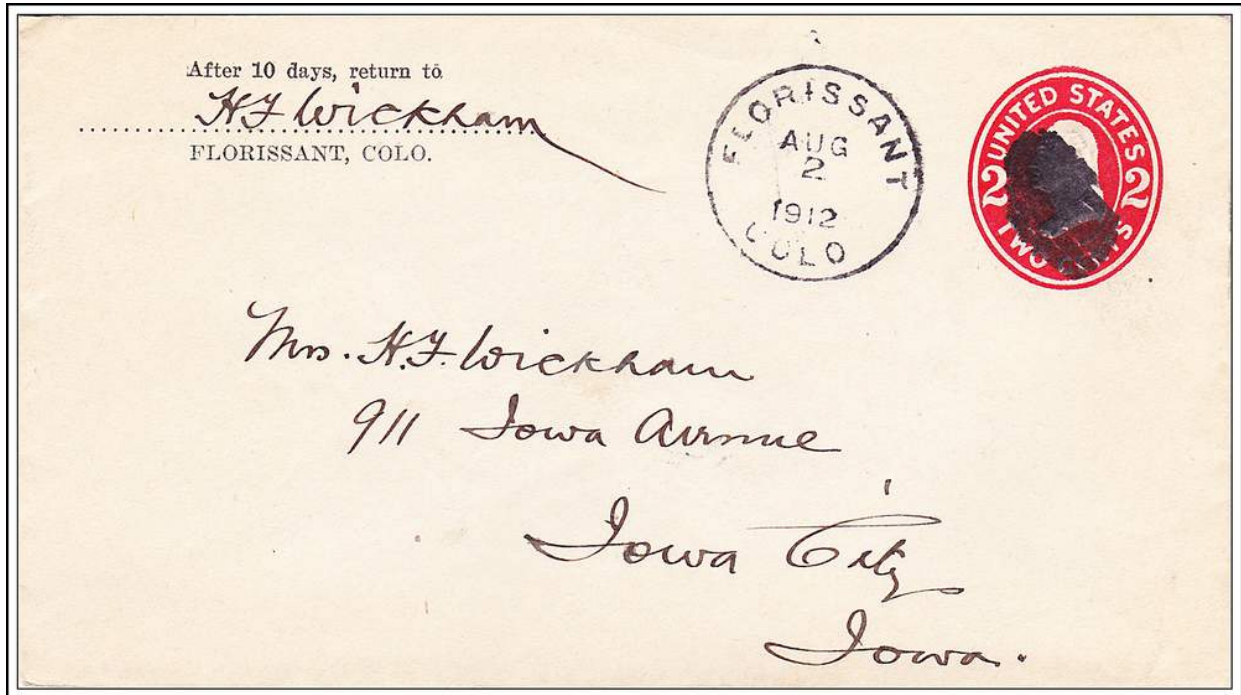 After 10 days, return to
H F Wickham
FLORISSANT, COLO.
FLORISSANT
AUG
2
1912
COLO
UNITED STATES
2 2
TWO CENTS
Mrs. H. F. Wickham
911 Iowa Avenue
Iowa City
Iowa.